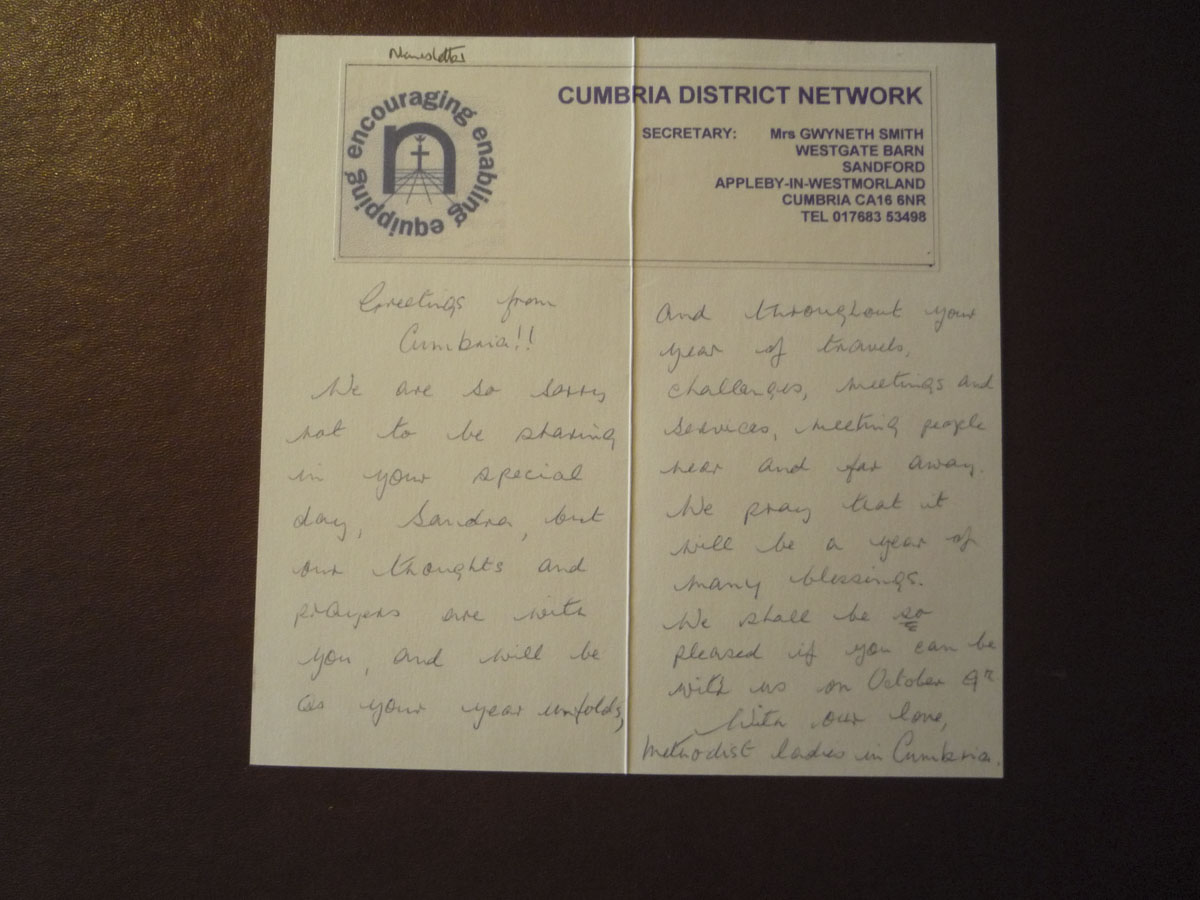 Newsletter
encouraging enabling equipping
n
CUMBRIA DISTRICT NETWORK
SECRETARY: Mrs GWYNETH SMITH
WESTGATE BARN
SANDFORD
APPLEBY-IN-WESTMORLAND
CUMBRIA CA16 6NR
TEL 017683 53498
Greetings from
Cumbria!!
We are so sorry
not to be sharing
in your special
day, Sandra, but
our thoughts and
prayers are with
you, and will be
as your year unfolds,
and throughout your
year of travels,
challenges, meetings and
services, meeting people
near and far away.
We pray that it
will be a year of
many blessings.
We shall be so
pleased if you can be
with us on October 9th
With our love,
Methodist ladies in Cumbria.